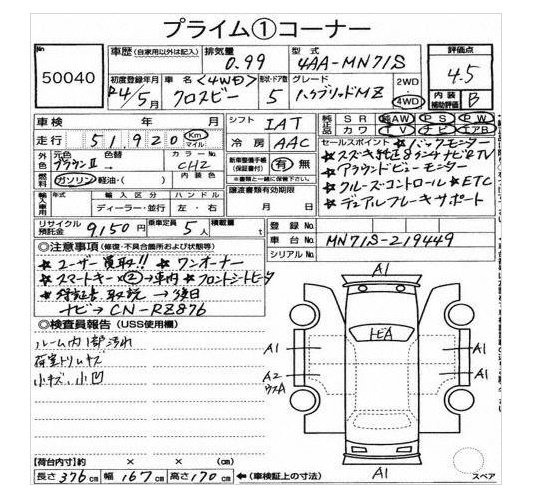 プライム①コーナー
No
50040
車歴 (自家用以外は記入) 排気量 0.99 型式 4AA-MN71S
評価点 4.5
初度登録年月 R4/5月 車名 <4WD> クロスビー 形状・ドア数 5 グレード ハイブリッドMZ 2WD 4WD
内装補助評価 B
車検 年 月 シフト IAT
純正品 SR 純AW PS PW
カワ TV ナビ エアB
走行 51,920 Km マイル 冷房 AAC
セールスポイント ★バックモーター
★スズキ純正8インチナビ&TV
★アラウンドビューモーター
★クルーズコントロール★ETC
★デュアルブレーキサポート
外色 元色 ブラウンⅡ 色替 カラーNo CH2
新車整備手帳(保証書付) 有 無
燃料 ガソリン 軽油・( ) 内装色
輸入車用 年式 輸入区分 ハンドル
ディーラー・並行 左・右
譲渡書類有効期限
月 日
リサイクル預託金 9150円 乗車定員 5人 積載量 t
登録No.
車台No. MN71S-219449
シリアルNo.
◎注意事項 (修復・不具合箇所および状態等)
★ユーザー買取!! ★ワンオーナー
★スマートキー×② →車内 ★フロントシートヒータ
★保証書、取説 →後日
ナビ→CN-RZ876
◎検査員報告 (USS使用欄)
ルーム内1部汚れ
荷室トリムキズ
小キズ、小凹
A1
A1
A2
ウスA
A1
A1
A1
【荷台内寸】約 × × (cm)
長さ 376cm 幅 167cm 高さ 170cm ←(車検証上の寸法)
スペア